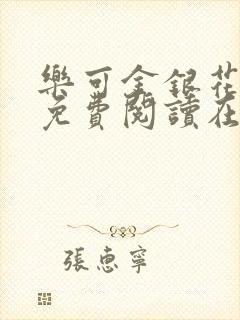 樂可金銀花
免費閱讀在
張惠寧